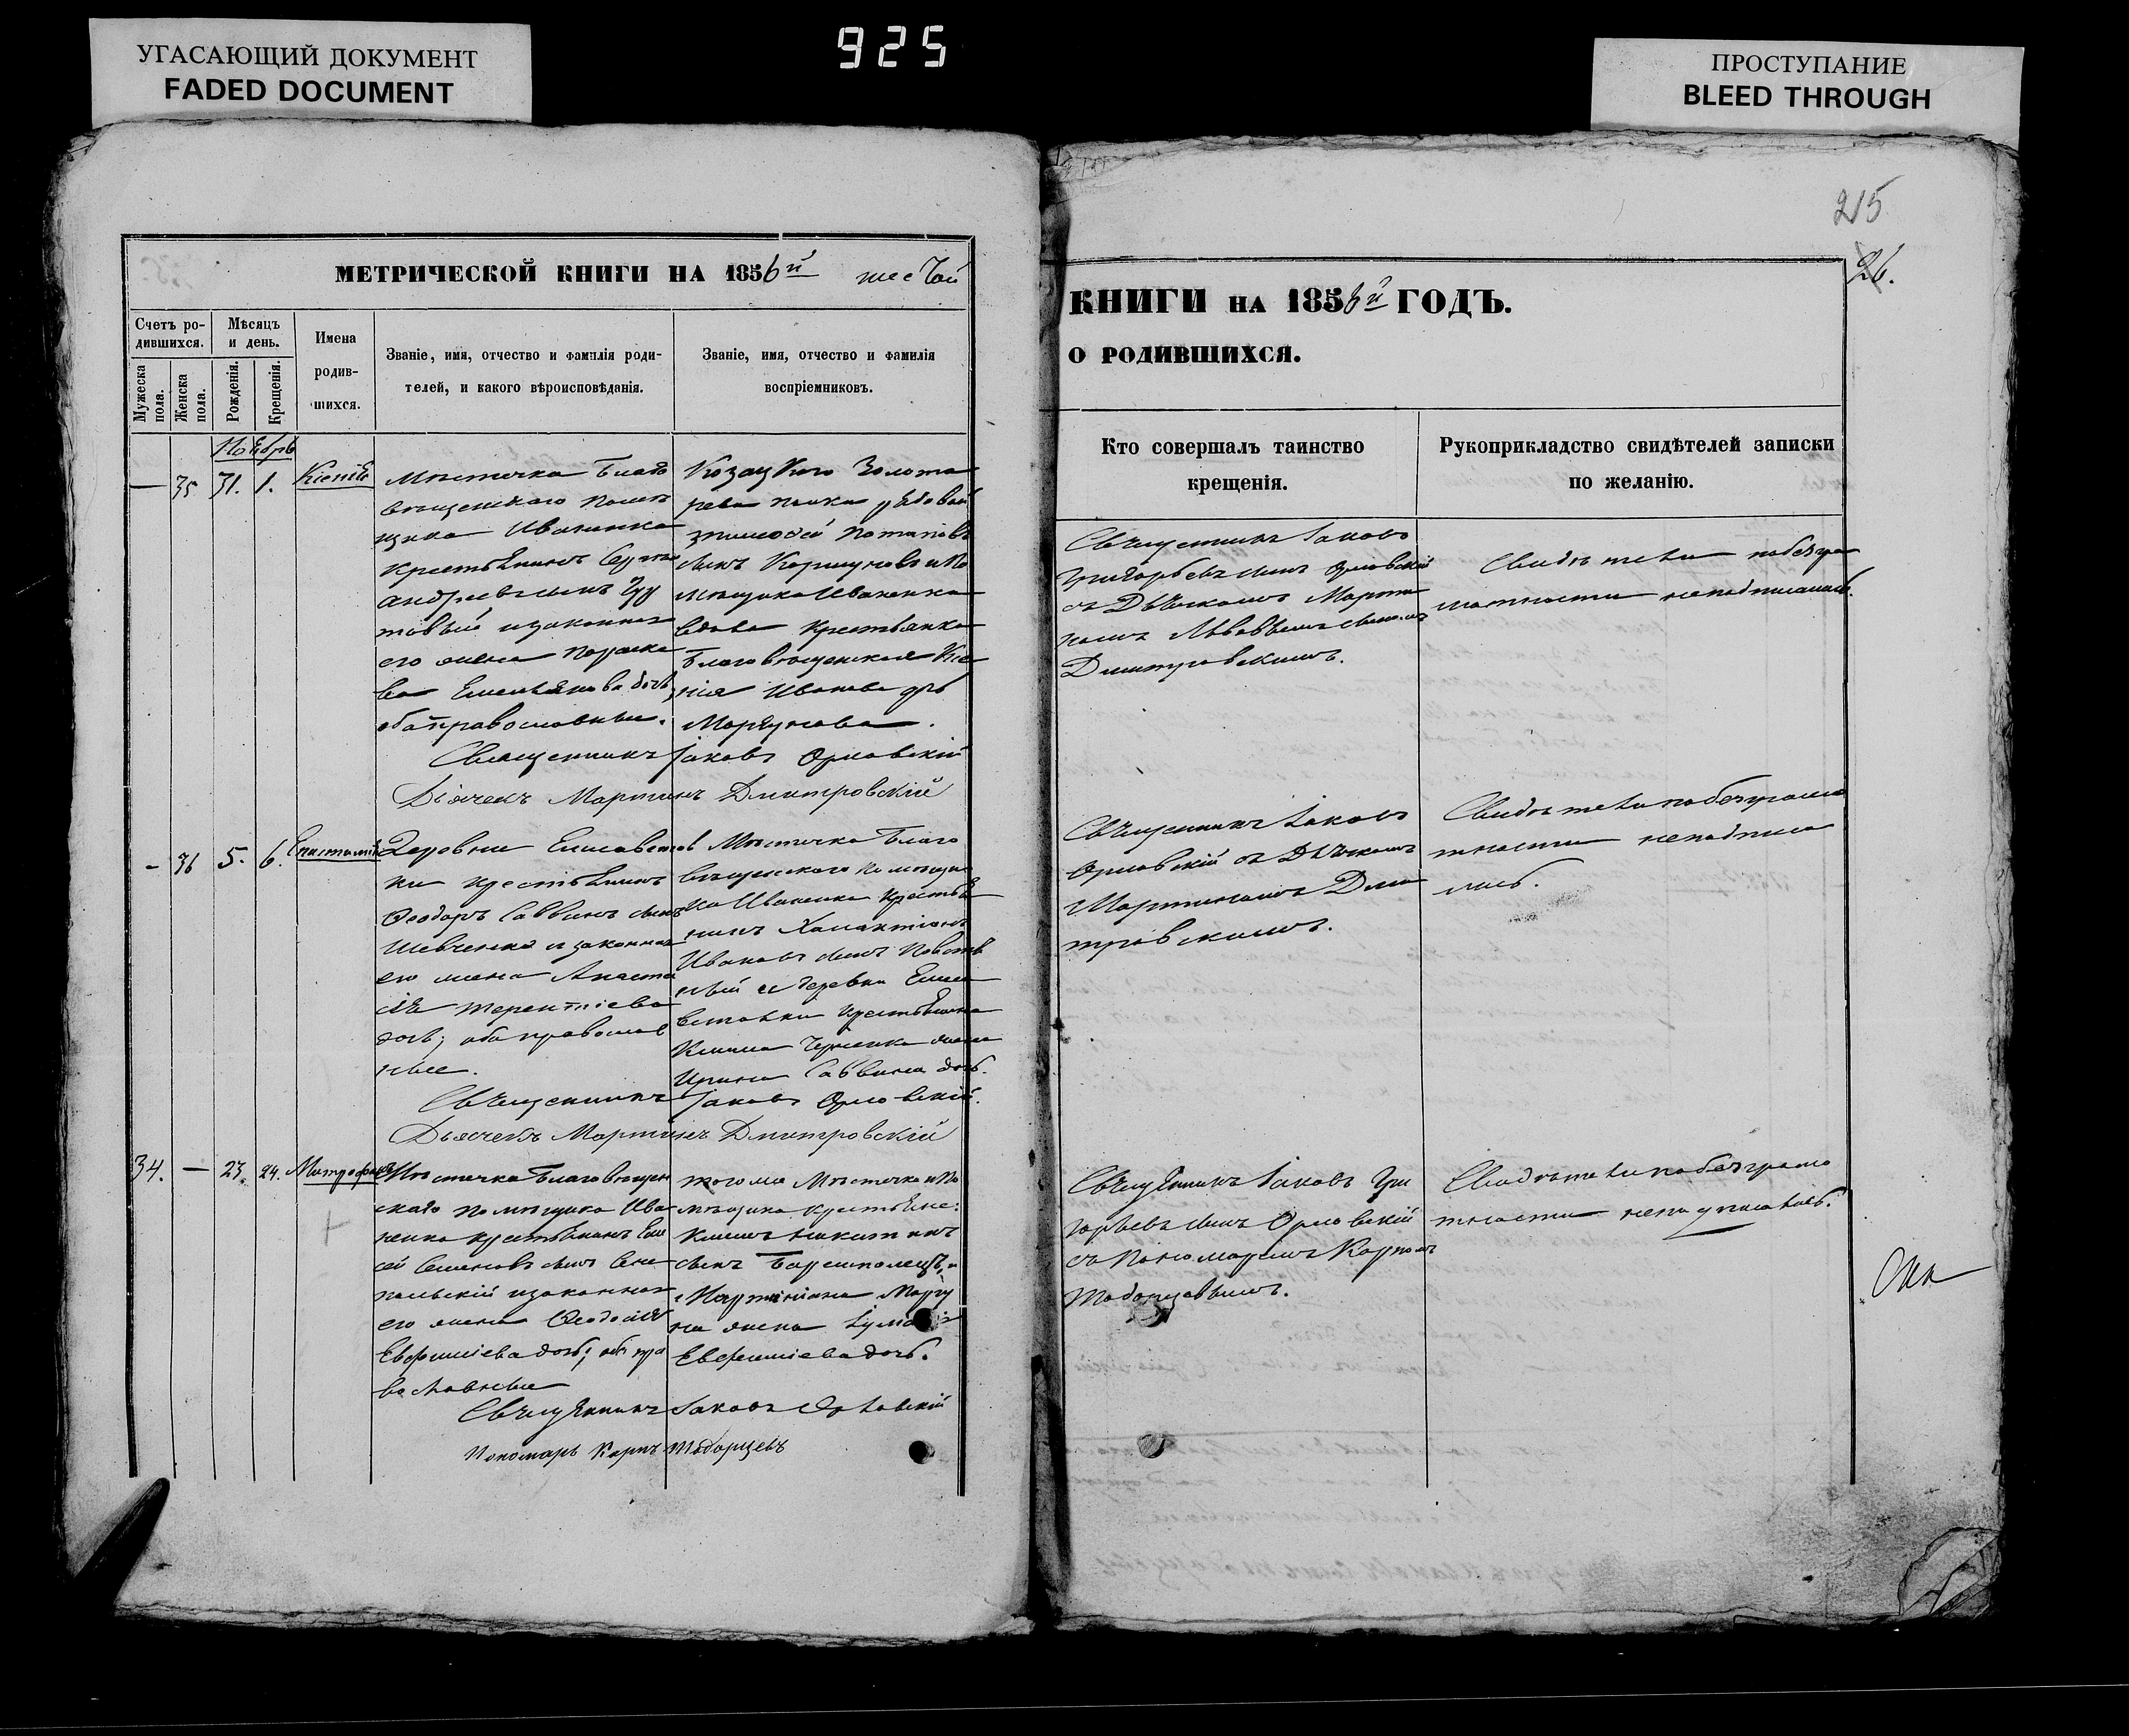 УГАСАЮЩИЙ ДОКУМЕНТ
FADED DOCUMENT
925
ПРОСТУПАНИЕ
BLEED THROUGH
МЕТРИЧЕСКОЙ КНИГИ НА 1856й шестой
Счетъ ро-
дившихся.
Мѣсяцъ
и день.
Имена
родив-
шихся.
Званіе, имя, отчество и фамилія роди-
телей, и какого вѣроисповѣданія.
Званіе, имя, отчество и фамилія
воспріемниковъ.
Мужеска
пола.
Женска
пола.
Рожденія.
Крещенія.
Ноябрь
— 35 31. 1.
Мѣстечка Благо
вѣщенскаго помѣ
щика Иваненка
крестьянинъ
Андреевъ сынъ
товый и законная
его жена Параске
ва Емельянова дочь,
оба православные.
Козацкаго Золота
рева полка рядовой
Тимофей Потаповъ
сынъ Коршуновъ и по
мѣщика Иваненка
вдова крестьянка
Благовѣщенская Ксе
нія Иванова дочь
Моргунова.
Священникъ Іаковъ Орловскій
Дьячекъ Мартинъ Дмитровскій
- 36 5. 6.
Деревни Елисаветов
ки крестьянинъ
Феодоръ Саввинъ сынъ
Шевченко и законная
его жена Анаста
сія Терентіева
дочь; оба православ
ные.
Мѣстечка Благо
вѣщенскаго помѣщи
ка Иваненка крестья
нинъ
Ивановъ сынъ
и деревни Елиса
ветовки крестьянина
жена
Ирина Саввина дочь.
Священникъ Іаковъ Орловскій.
Дьячекъ Мартинъ Дмитровскій
34. — 23. 24. Митрофанъ
Мѣстечка Благовѣщен
скаго помѣщика Ива
ненка крестьянинъ Ели
сей Семеновъ сынъ
польскій и законная
его жена Феодосія
Евфиміева дочь; оба пра
вославные
того же мѣстечка и по
мѣщика крестьяне:
Климъ Никитинъ
сынъ Борисполецъ, и
жена
Евфиміева дочь.
Священникъ Іаковъ Орловскій
Пономарь Карпъ Тодорцевъ
215
26.
КНИГИ НА 1856й ГОДЪ.
О РОДИВШИХСЯ.
Кто совершалъ таинство
крещенія.
Рукоприкладство свидѣтелей записки
по желанію.
Священникъ Іаковъ
Григорьевъ сынъ Орловскій
съ Дьячкомъ Марти
номъ Львовымъ сыномъ
Дмитровскимъ.
Свидѣтели по безгра
мотности неподписались.
Священникъ Іаковъ
Орловскій съ Дьячкомъ
Мартиномъ Дми
тровскимъ.
Свидѣтели по безграмо
тности неподписа
лись.
Священникъ Іаковъ Гри
горьевъ сынъ Орловскій
съ Пономаремъ Карпомъ
Тодорцевымъ.
Свидѣтели по безграмо
тности неподписались.